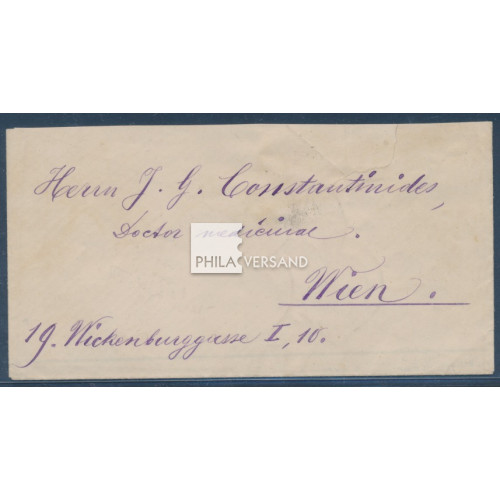 Herrn J. G. Constantinides,
Doctor medicinae.
PHILA VERSAND
Wien.
19. Wickenburggasse I, 10.